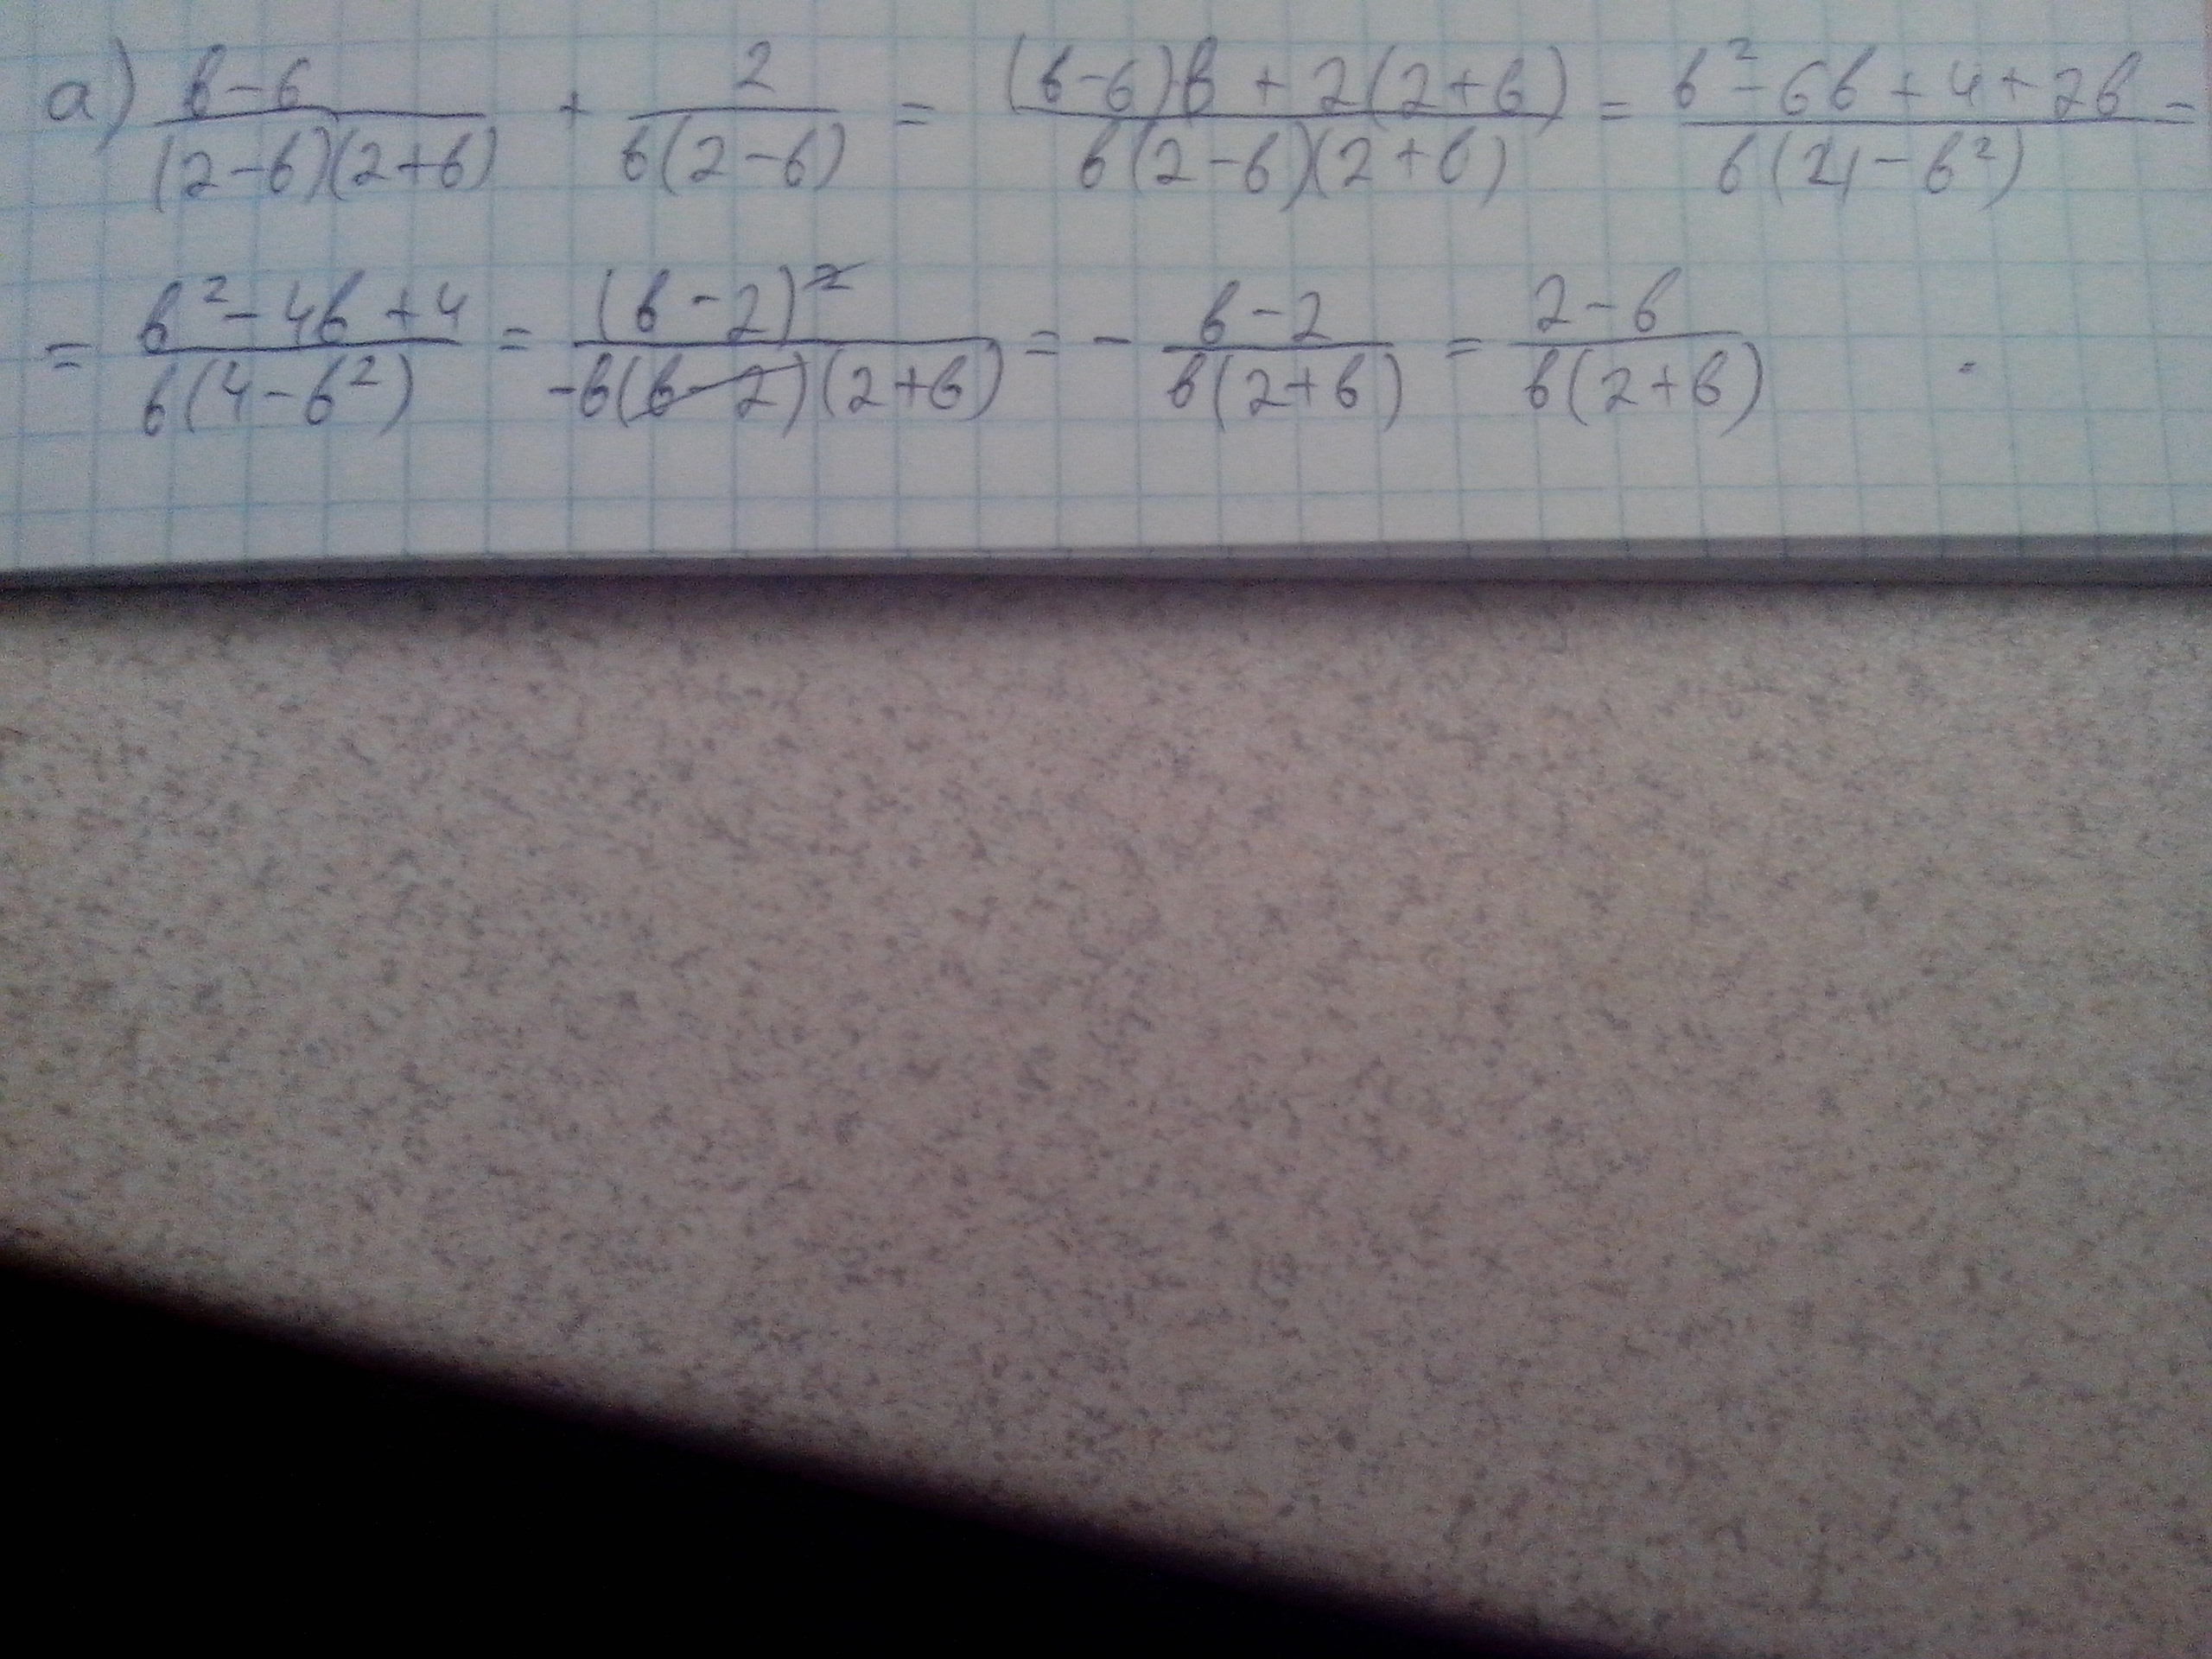 а) (b-6)/((2-b)(2+b)) + 2/(b(2-b)) = ((b-6)b + 2(2+b))/(b(2-b)(2+b)) = (b²-6b+4+2b)/(b(4-b²)) =
= (b²-4b+4)/(b(4-b²)) = (b-2)²/(-b(b-2)(2+b)) = - (b-2)/(b(2+b)) = (2-b)/(b(2+b))